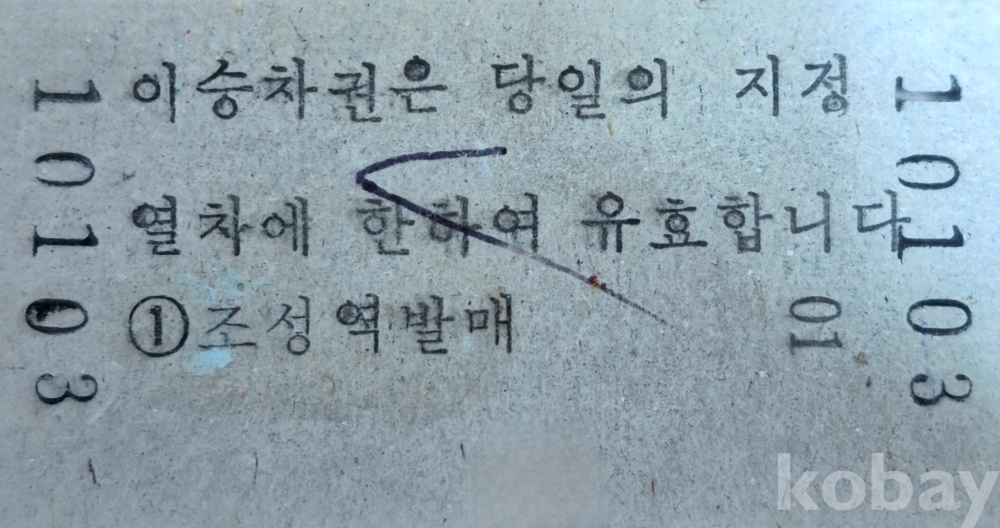 이승차권은 당일의 지정
열차에 한하여 유효합니다
①조성역발매
01
10103
10103
kobay